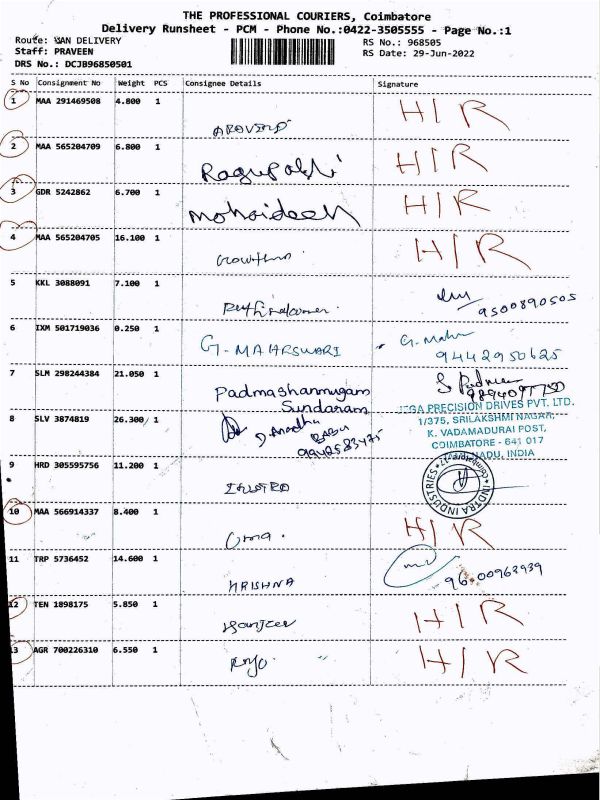 THE PROFESSIONAL COURIERS, Coimbatore
Delivery Runsheet - PCM - Phone No.:0422-3505555 - Page No.:1
Route: VAN DELIVERY
RS No.: 968505
Staff: PRAVEEN
RS Date: 29-Jun-2022
DRS No.: DCJB96850501
S No Consignment No Weight PCS Consignee Details Signature
1 MAA 291469508 4.800 1 H/R
ARAVIND
2 MAA 565204709 6.800 1 H/R
Ragupathi
3 GDR 5242862 6.700 1 H/R
Mohaideen
4 MAA 565204705 16.100 1 H/R
Gowtham
5 KKL 3088091 7.100 1
9500890505
6 IXM 501719036 0.250 1
G. Mahe
G-MAHESWARI
9442950625
7 SLM 298244384 21.050 1
Padmashanmugam
Sundaram
8 SLV 3874819 26.300 1
D. Anandha
BABU
9942583475
PRECISION DRIVES PVT. LTD.
1/375, SRILAKSHMI NAGAR,
K. VADAMADURAI POST,
COIMBATORE - 641 017
TAMILNADU, INDIA
9 HRD 305595756 11.200 1
INDTRA INDUSTRIES
10 MAA 566914337 8.400 1 H/R
Uma.
11 TRP 5736452 14.600 1
KRISHNA
96 00963939
12 TEN 1898175 5.850 1 H/R
Sanjeev
13 AGR 700226310 6.550 1 H/R